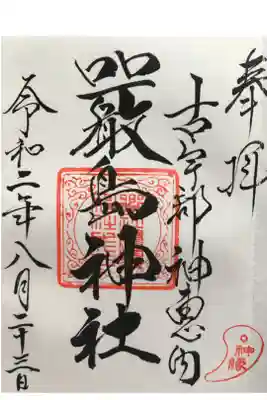 奉拝
古宇郡神恵内
嚴島神社
令和二年八月二十三日